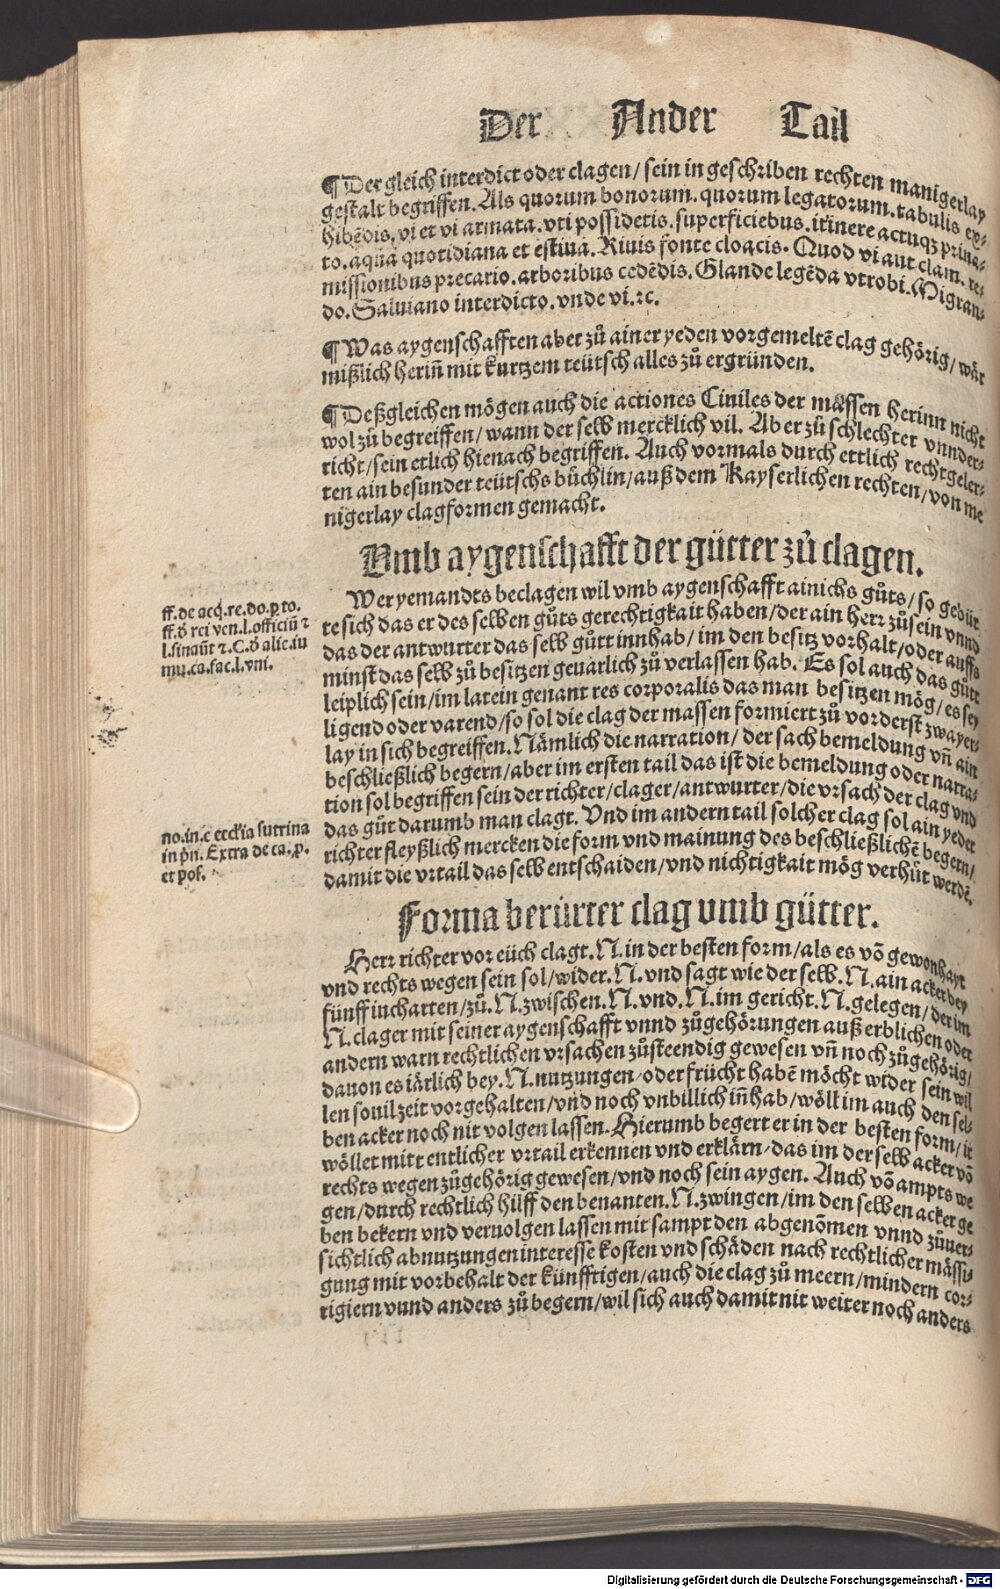 Der Ander Tail
¶ Der gleich interdict oder clagen/ sein in geschriben rechten manigerlay
gestalt begriffen. Als quorum bonorum. quorum legatorum. tabulis ex-
hibēdis. vi et vi armata. vti possidetis. superficiebus. itinere actuqz priua-
to. aqua quotidiana et estiua. Riuis fonte cloacis. Quod vi aut clam. re-
missionibus precario. arboribus cedēdis. Glande legēda vtrobi. Migran-
do. Saluiano interdicto. vnde vi. ꝛc.
¶ Was aygenschafften aber zů ainer yeden vorgemeltē clag gehörig/ wär
mißlich herin̄ mit kurtzem teütsch alles zů ergründen.
¶ Deßgleichen mögen auch die actiones Ciuiles der massen herinn nicht
wol zů begreiffen/ wann der selb mercklich vil. Aber zů schlechter vnnder-
richt/ sein etlich hienach begriffen. Auch vormals durch ettlich rechtgeler-
ten ain besunder teütschs büchlin/ auß dem Kayserlichen rechten/ von me
nigerlay clagformen gemacht.
Vmb aygenschafft der gütter zů clagen.
Wer yemandts beclagen wil vmb aygenschafft ainichs gůts/ so gebür
te sich das er des selben gůts gerechtigkait haben/ der ain herr zů sein vnnd
das der antwurter das selb gůtt innhab/ im den besitz vorhalt/ oder auffs
minst das selb zů besitzen geuarlich zů verlassen hab. Es sol auch das gůtt
leiplich sein/ im latein genant res corporalis das man besitzen mög/ es sey
ligend oder varend/ so sol die clag der massen formiert zů vorderst zwayer-
lay in sich begreiffen. Nämlich die narration/ der sach bemeldung vn̄ ain
beschließlich begern/ aber im ersten tail das ist die bemeldung oder narra-
tion sol begriffen sein der richter/ clager/ antwurter/ die vrsach der clag vnd
das gůt darumb man clagt. Vnd im andern tail solcher clag sol ain yeder
richter fleyßlich mercken die form vnd mainung des beschließlichē begern/
damit die vrtail das selb entschaiden/ vnd nichtigkait mög verhüt werdē.
ff. de acq. re. do. p to.
ff. d̄ rei ven. l. officiū ꝛ
l. sinaut̄ ꝛ. C. d̄ alie. iu
mu. ca. fac. l. vni.
no. in. c ecclīa sutrina
in pn̄. Extra de ca. p.
et pos.
Forma berürter clag vmb gütter.
Herr richter vor eüch clagt. N. in der besten form/ als es vō gewonhayt
vnd rechts wegen sein sol/ wider. N. vnd sagt wie der selb. N. ain acker bey
fünff iucharten/ zů. N. zwischen. N. vnd. N. im gericht. N. gelegen/ der im
N. clager mit seiner aygenschafft vnnd zůgehörungen auß erblichen oder
andern warn rechtlichen vrsachen zůsteendig gewesen vn̄ noch zůgehörig/
dauon es iärlich bey. N. nutzungen/ oder frücht habē möcht wider sein wil
len souil zeit vorgehalten/ vnd noch vnbillich in̄hab/ wöll im auch den sel-
ben acker noch nit volgen lassen. Hierumb begert er in der besten form/ ir
wöllet mitt entlicher vrtail erkennen vnd erklärn/ das im der selb acker vō
rechts wegen zůgehörig gewesen/ vnd noch sein aygen. Auch vō ampts we
gen/ durch rechtlich hilff den benanten. N. zwingen/ im den selben acker ge
ben bekern vnd veruolgen lassen mit sampt den abgenōmen vnnd zůuer-
sichtlich abnutzungen interesse kosten vnd schäden nach rechtlicher mässi-
gung mit vorbehalt der künfftigen/ auch die clag zů meern/ mindern cor-
rigiern vnnd anders zů begern/ wil sich auch damit nit weiter noch anders
Digitalisierung gefördert durch die Deutsche Forschungsgemeinschaft - DFG